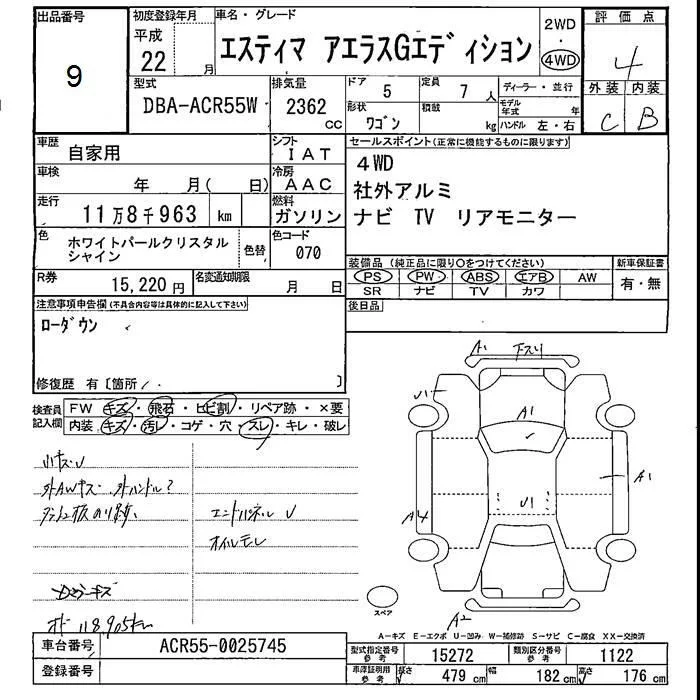 出品番号
9
初度登録年月
平成
22 月
車名・グレード
エスティマ アエラスGエディション
2WD
・
4WD
評価点
4
外装 内装
C B
型式
DBA-ACR55W
排気量
2362
cc
ドア 5
定員 7 人
形状
ワゴン
積載
kg
ディーラー・並行
モデル年式 年
ハンドル 左・右
車歴
自家用
シフト
IAT
車検
年 月( 日)
冷房
AAC
走行
11万8千963 km
燃料
ガソリン
色
ホワイトパールクリスタル
シャイン
色替
色コード
070
R券
15,220 円
名変通知期限
月 日
セールスポイント(正常に機能するものに限ります)
4WD
社外アルミ
ナビ TV リアモニター
装備品(純正品に限り〇をつけてください)
新車保証書
PS PW ABS エアB AW
SR ナビ TV カワ
有・無
後日品
注意事項申告欄(不具合内容等は具体的に記入して下さい)
ローダウン
修復歴 有〔箇所 〕
検査員
記入欄
FW キズ・飛石・ヒビ割・リペア跡・×要
内装 キズ・汚レ・コゲ・穴・スレ・キレ・破レ
外AWキズ 外ハンドル?
エンドパネルU
オイルモレ
A1 下スリ
U1
A1
A1
U1
A4
A2
スペア
A-キズ E-エクボ U-凹み W-補修跡 S-サビ C-腐食 XX-交換済
車台番号
ACR55-0025745
登録番号
型式指定番号
参考
15272
類別区分番号
参考
1122
車庫証明用
参考
長さ 479 cm
幅 182 cm
高さ 176 cm